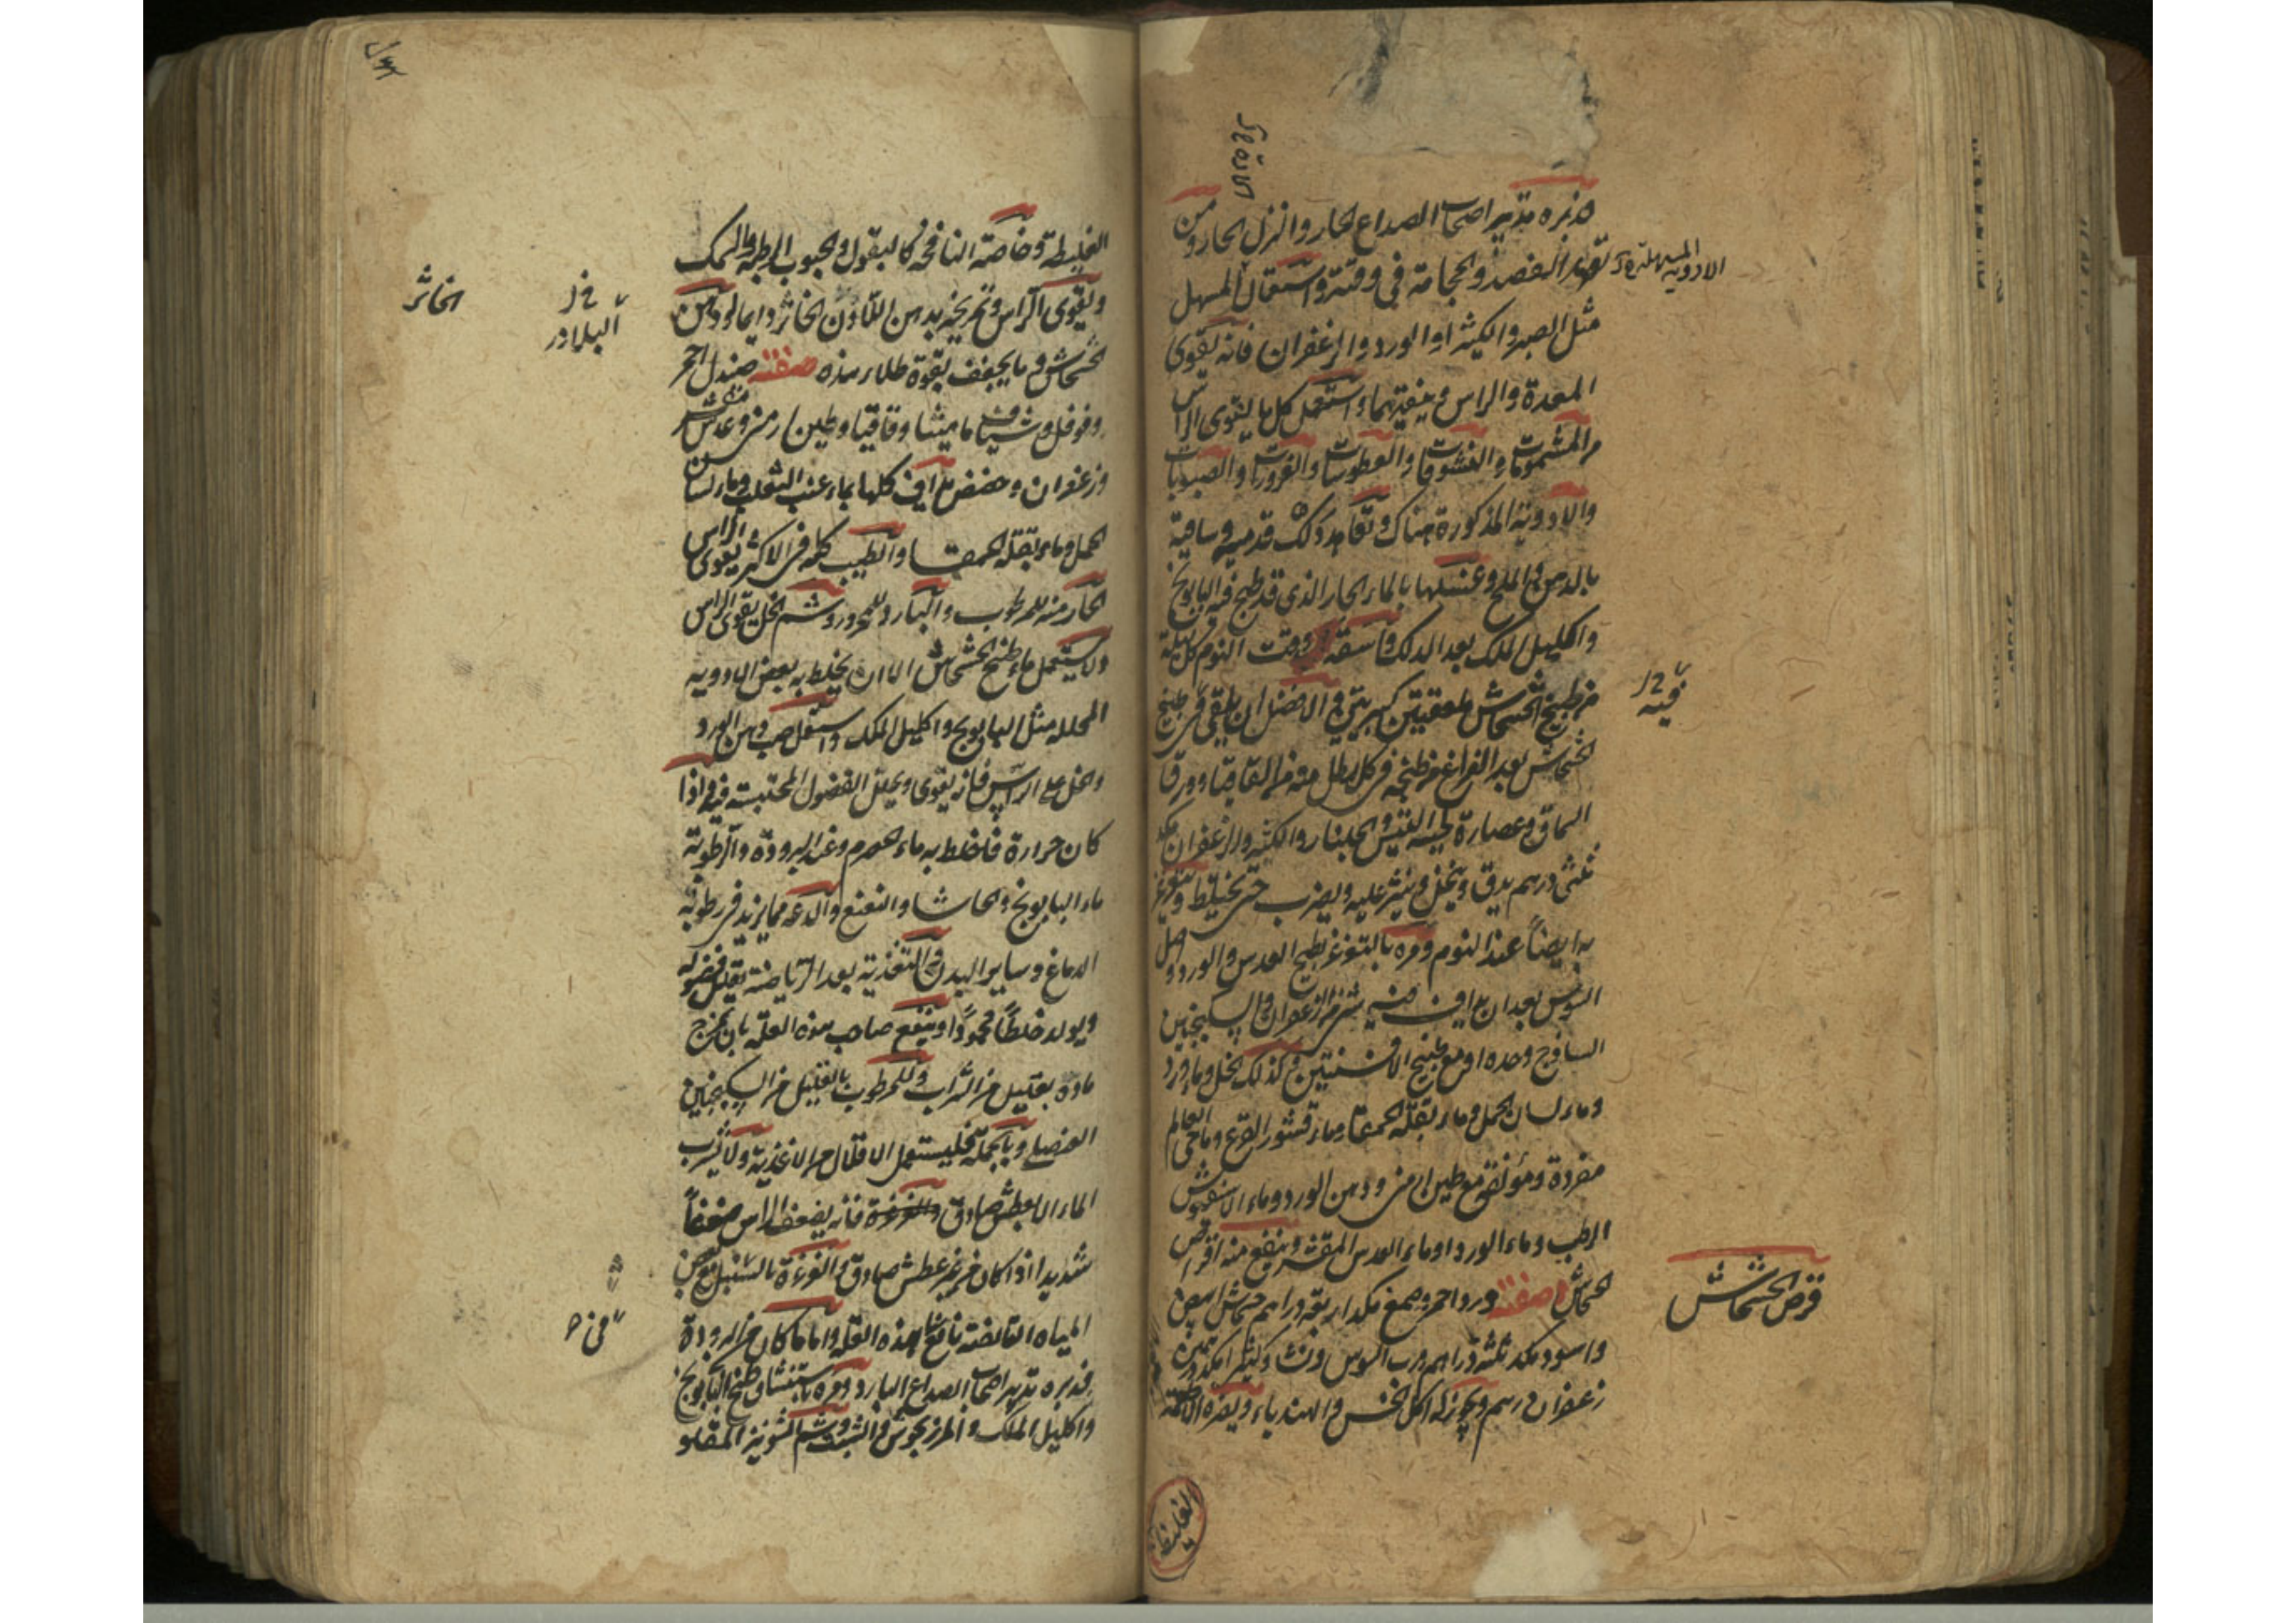 فدبره بتدبير اصحاب الصداع الحار والنزل الحار ومن
الفصد والحجامة في وقته واستعمال المسهل
الادوية المسهلة
مثل الصبر والكثيرا والورد والزعفران فانه يقوى
المعدة والراس وينقيهما واستعمل كل ما يقوى الراس
من المشمومات والنشوقات والعطوسات والغرورات والصبوبات
والادوية المذكورة هناك وتعاهد دلك قدميه وساقيه
بالدهن والملح وغسلها بالماء الحار الذي قد طبخ فيه البابونج
واكليل الملك بعد الدلك واسقه وقت النوم كل ليلة
من طبيخ الخشخاش ملعقتين كبيرتين والافضل ان يلقى في طبيخ
فيه
الخشخاش بعد الفراغ من طبخه في كل رطل منه من القاقيا وورق
السماق وعصارة لحية التيس والجلنار والكثيرا والزعفران مكد
ثلثى درهم يدق وينخل وينثر عليه ويضرب حتى يختلط ويتغرغر
به ايضاً عند النوم ومره بالتغرغر بطبيخ العدس والورد واصل
السوس بعد ان يداف فيه شئ من الزعفران والسكنجبين
الساذج وحده او مع طبيخ الافسنتين وكذلك الخل وماء ورد
وماء لسان الحمل وماء بقلة الحمقا وماء قشور القرع وماء حى العالم
مفردة ومؤلفة مع طين ارمنى ودهن الورد وماء
الرطب وماء الورد او ماء العدس المقشر وينفع منه اقراص
قرص الخشخاش
الخشخاش صفته ورد احمر وصمغ مكد اربعة دراهم خشخاش ابيض
واسود مكد ثلثة دراهم رب السوس ونشا وكثيرا مكد درهمين
زعفران درهم ويجوز له اكل الخس والهندباء ويضره الاطعمة
الغليظة
الغليظة وخاصة النافخة كالبقول والحبوب الرطبة والسمك
ويقوى الراس وتمريخه بدهن اللاذن الخاثر وايما لودهن
الخاثر
البلادر
الخشخاش وما يجفف بقوة طلاء هذه صفته صندل احمر
وفوفل وشياف ماميثا وقاقيا وطين ارمنى وعدس مقشر
وزعفران وحضض يداف كلها بماء عنب الثعلب وماء لسان
الحمل وماء بقلة الحمقا والطيب كله في الاكثر يقوى الراس
الحار منه للمرطوب والبارد للمحرور وشم الخل يقوى الراس
ولا يستعمل ماء طبخ الخشخاش الا ان يخلط به بعض الادويه
المحللة مثل البابونج واكليل الملك واستعمل صب دهن الورد
والخل على الراس فانه يقوى ويحلل الفضول المحتبسة فيه واذا
كان حرارة فاخلط به ماء الحصرم وعند البرودة والرطوبة
ماء البابونج والحاشا والنعنع والدعة مما يزيد في رطوبة
الدماغ وساير البدن والتغذية بعد الرياضة يقلل فضوله
ويولد خلطاً محموداً وينتفع صاحب هذه العلة بان يمزج
ماؤه بقليل من الشراب وللمرطوب بالقليل من السكنجبين
العنصلى وبالجملة فليستعمل الاقلال من الاغذية ولا يشرب
الماء الا بعطش صادق فانه يضعف الراس ضعفاً
شديدا اذا كان من غير عطش صادق والغرغرة بالسنبل مع بعض
المياه القابضة نافع لهذه العلة واما ما كان من البرودة
فدبره تدبير اصحاب الصداع البارد ومره باستنشاق طبيخ البابونج
واكليل الملك والمرزنجوش والشبث وشم الشونيز المقلو